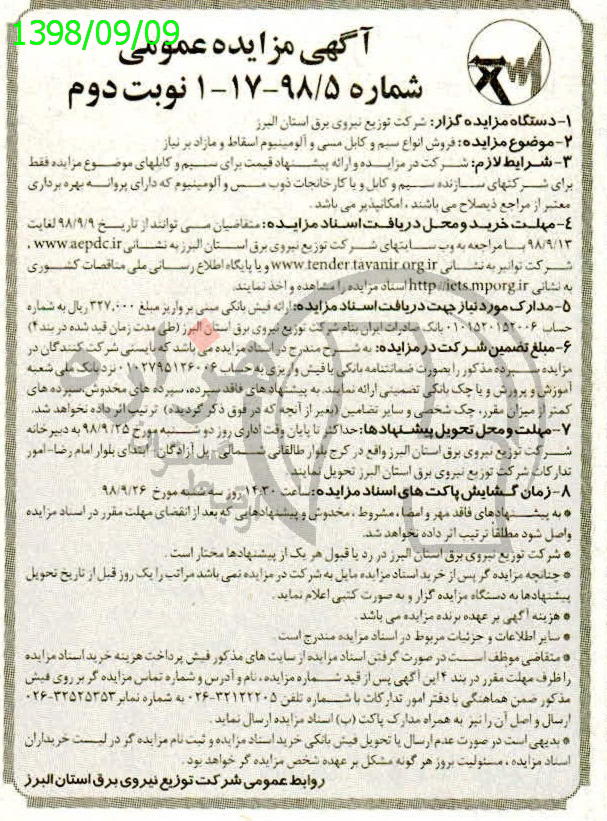 1398/09/09
آگهی مزایده عمومی
شماره ۹۸/۵-۱۷-۱ نوبت دوم
۱-دستگاه مزایده گزار: شرکت توزیع نیروی برق استان البرز
۲-موضوع مزایده: فروش انواع سیم و کابل مسی و آلومینیوم اسقاط و مازاد بر نیاز
۳-شرایط لازم: شرکت در مزایده و ارائه پیشنهاد قیمت برای سیم و کابلهای موضوع مزایده فقط
برای شرکتهای سازنده سیم و کابل و یا کارخانجات ذوب مس و آلومینیوم که دارای پروانه بهره برداری
معتبر از مراجع ذیصلاح می باشند ، امکانپذیر می باشد .
۴-مهلت خرید و محل دریافت اسناد مزایده: متقاضیان می توانند از تاریخ ۹۸/۹/۹ لغایت
۹۸/۹/۱۳ با مراجعه به وب سایتهای شرکت توزیع نیروی برق استان البرز به نشانی www.aepdc.ir ،
شرکت توانیر به نشانی www.tender.tavanir.org.ir و یا پایگاه اطلاع رسانی ملی مناقصات کشوری
به نشانی http://iets.mporg.ir اسناد مزایده را مشاهده و اخذ نمایند.
۵-مدارک مورد نیاز جهت دریافت اسناد مزایده: ارائه فیش بانکی مبنی بر واریز مبلغ ۳۲۷,۰۰۰ ریال به شماره
حساب ۰۱۰۱۵۲۰۱۵۲۰۰۶ بانک صادرات ایران بنام شرکت توزیع نیروی برق استان البرز (طی مدت زمان قید شده در بند۴)
۶-مبلغ تضمین شرکت در مزایده: به شرح مندرج در اسناد مزایده می باشد که بایستی شرکت کنندگان در
مزایده سپرده مذکور را بصورت ضمانتنامه بانکی یا فیش واریزی به حساب ۰۱۰۲۷۹۵۱۲۶۰۰۶ نزد بانک ملی شعبه
آموزش و پرورش و یا چک بانکی تضمینی ارائه نمایند. به پیشنهاد های فاقد سپرده، سپرده های مخدوش، سپرده های
کمتر از میزان مقرر، چک شخصی و سایر تضامین (بغیر از آنچه که در فوق ذکر گردیده) ترتیب اثر داده نخواهد شد.
۷-مهلت و محل تحویل پیشنهادها: حداکثر تا پایان وقت اداری روز دو شنبه مورخ ۹۸/۹/۲۵ به دبیرخانه
شرکت توزیع نیروی برق استان البرز واقع در کرج بلوار طالقانی شمالی-پل آزادگان- ابتدای بلوار امام رضا-امور
تدارکات شرکت توزیع نیروی برق استان البرز تحویل نمایند
۸-زمان گشایش پاکت های اسناد مزایده: ساعت ۱۴:۳۰ روز سه شنبه مورخ ۹۸/۹/۲۶
* به پیشنهادهای فاقد مهر و امضا، مشروط ، مخدوش و پیشنهادهایی که بعد از انقضای مهلت مقرر در اسناد مزایده
واصل شود مطلقا ترتیب اثر داده نخواهد شد.
* شرکت توزیع نیروی برق استان البرز در رد یا قبول هر یک از پیشنهادها مختار است .
* چنانچه مزایده گر پس از خرید اسناد مزایده مایل به شرکت در مزایده نمی باشد مراتب را یک روز قبل از تاریخ تحویل
پیشنهادها به دستگاه مزایده گزار و به صورت کتبی اعلام نماید .
* هزینه آگهی بر عهده برنده مزایده می باشد .
* سایر اطلاعات و جزئیات مربوط در اسناد مزایده مندرج است .
* متقاضی موظف است در صورت گرفتن اسناد مزایده از سایت های مذکور فیش پرداخت هزینه خرید اسناد مزایده
را ظرف مهلت مقرر در بند ۴ این آگهی پس از قید شماره مزایده ، نام و آدرس و شماره تماس مزایده گر بر روی فیش
مذکور ضمن هماهنگی با دفتر امور تدارکات با شماره تلفن ۳۲۱۲۲۲۰۵-۰۲۶ به شماره نمابر ۳۲۵۲۵۳۵۳-۰۲۶
ارسال و اصل آن را نیز به همراه مدارک پاکت (ب) اسناد مزایده ارسال نماید .
* بدیهی است در صورت عدم ارسال یا تحویل فیش بانکی خرید اسناد مزایده و ثبت نام مزایده گر در لیست خریداران
اسناد مزایده ، مسئولیت بروز هر گونه مشکل بر عهده شخص مزایده گر خواهد بود.
روابط عمومی شرکت توزیع نیروی برق استان البرز